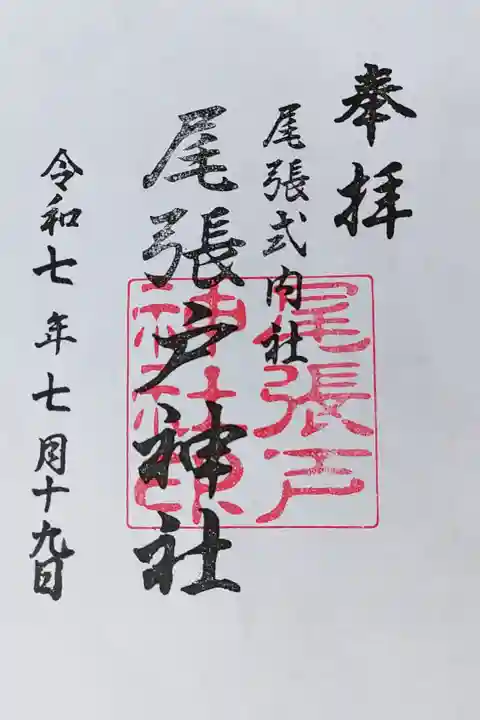 奉拝
尾張式内社
尾張戸神社
尾張戸
神社印
令和七年七月十九日